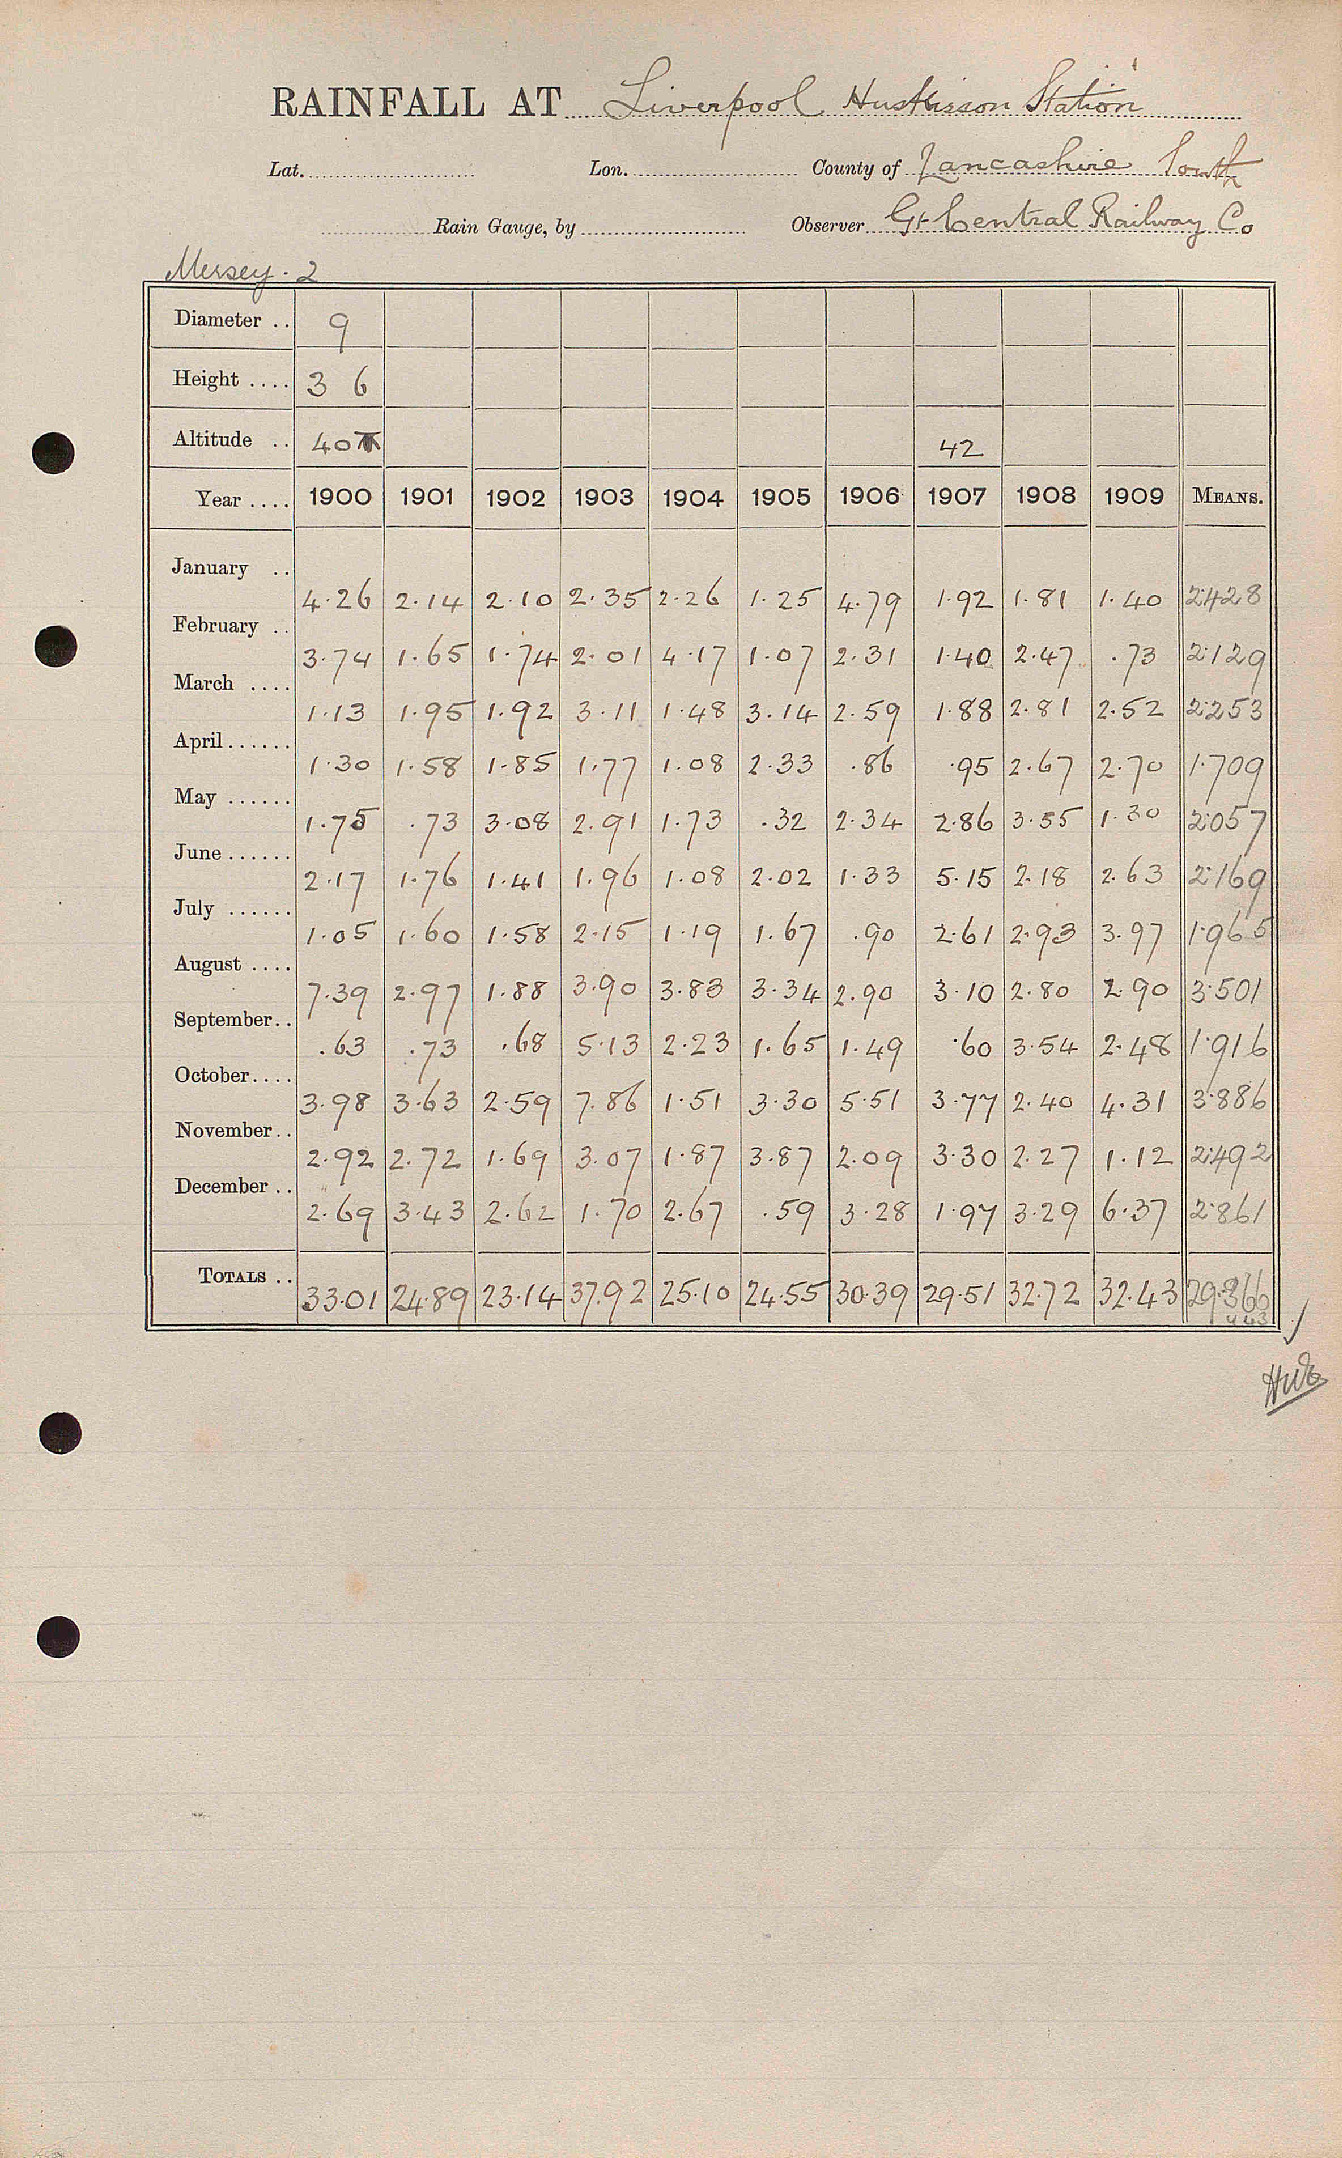 RAINFALL AT Liverpool Huskisson Station
Lat. Lon. County of Lancashire South
Rain Gauge, by Observer Gt Central Railway Co
Mersey. 2
Diameter .. 9
Height .... 3 6
Altitude .. 40 42
Year .... 1900 1901 1902 1903 1904 1905 1906 1907 1908 1909 MEANS.
January .. 4.26 2.14 2.10 2.35 2.26 1.25 4.79 1.92 1.81 1.40 2.428
February .. 3.74 1.65 1.74 2.01 4.17 1.07 2.31 1.40 2.47 .73 2.129
March .... 1.13 1.95 1.92 3.11 1.48 3.14 2.59 1.88 2.81 2.52 2.253
April ...... 1.30 1.58 1.85 1.77 1.08 2.33 .86 .95 2.67 2.70 1.709
May ...... 1.75 .73 3.08 2.91 1.73 .32 2.34 2.86 3.55 1.30 2.057
June ...... 2.17 1.76 1.41 1.96 1.08 2.02 1.33 5.15 2.18 2.63 2.169
July ...... 1.05 1.60 1.58 2.15 1.19 1.67 .90 2.61 2.93 3.97 1.965
August .... 7.39 2.97 1.88 3.90 3.83 3.34 2.90 3.10 2.80 2.90 3.501
September.. .63 .73 .68 5.13 2.23 1.65 1.49 .60 3.54 2.48 1.916
October.... 3.98 3.63 2.59 7.86 1.51 3.30 5.51 3.77 2.40 4.31 3.886
November.. 2.92 2.72 1.69 3.07 1.87 3.87 2.09 3.30 2.27 1.12 2.492
December .. 2.69 3.43 2.62 1.70 2.67 .59 3.28 1.97 3.29 6.37 2.861
TOTALS .. 33.01 24.89 23.14 37.92 25.10 24.55 30.39 29.51 32.72 32.43 29.366